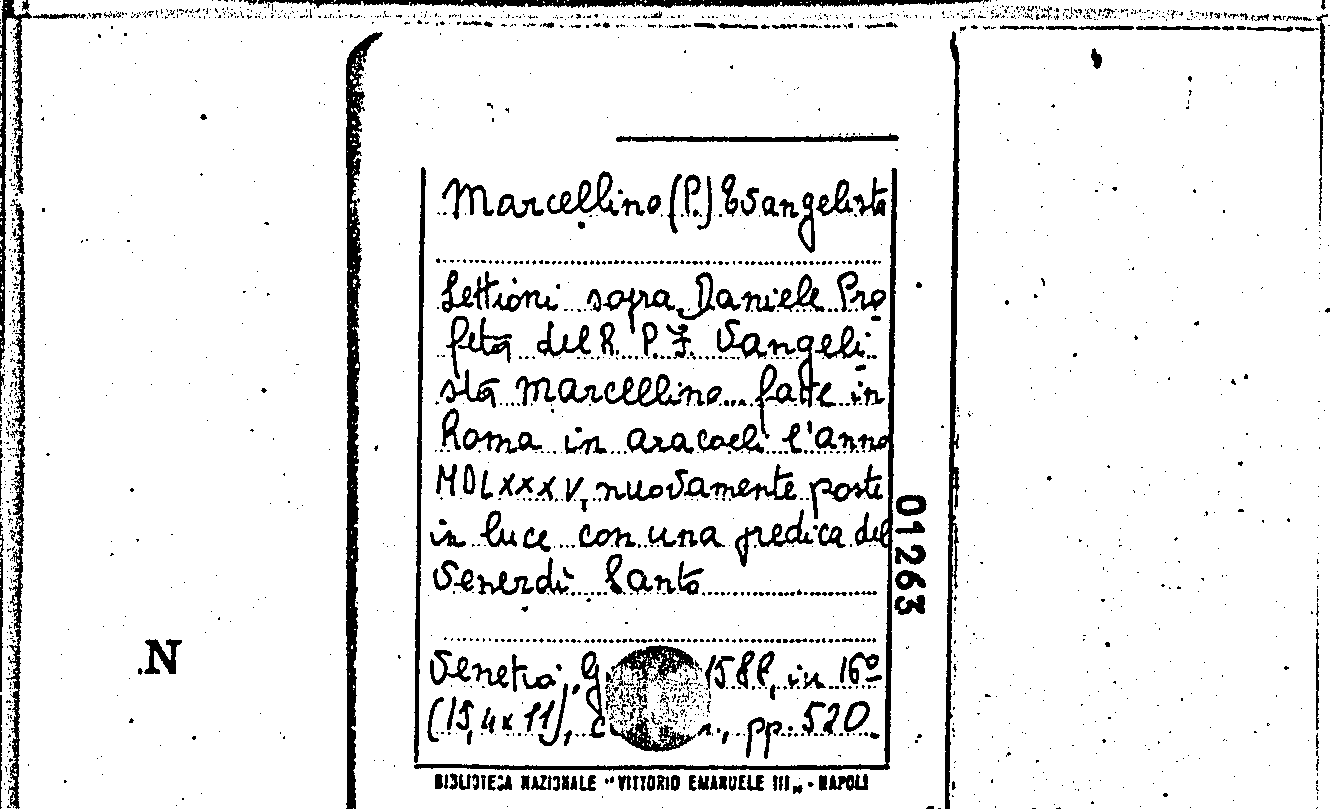 Marcellino (P.) Evangelista
Lettioni sopra Daniele Pro
feta del R. P. F. Vangeli-
sta Marcellino... fatte in
Roma in Aracoeli l'anno
MDLXXXV, nuovamente poste
in luce con una predica del
Venerdì Santo
01263
N
Venetia, 1588, in 16º
(15,4x11), pp. 520.
BIBLIOTECA NAZIONALE "VITTORIO EMANUELE III„ - NAPOLI